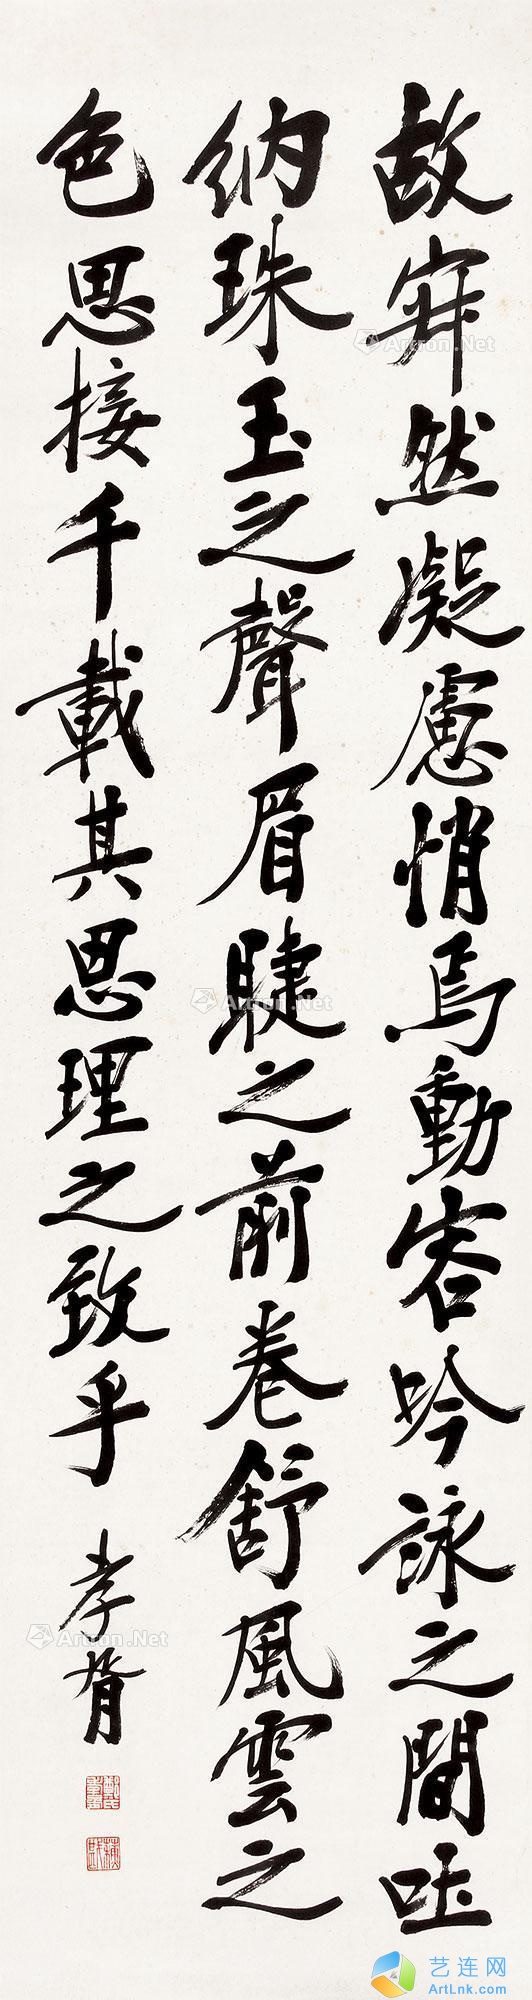 故寂然凝慮悄焉動容吟詠之間吐
納珠玉之聲眉睫之前卷舒風雲之
色思接千載其思理之致乎
孝胥
Artron.Net
Artron.Net
Artron.Net
艺连网
ArtLnk.com